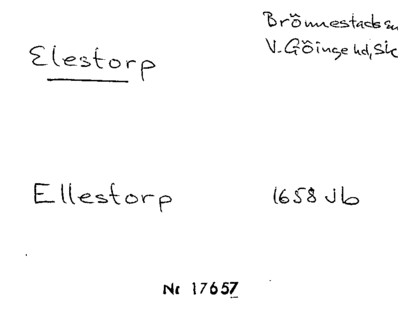 Brönnestads sn
V. Göinge hd, Sk
Elestorp
Ellestorp 1658 Jb
Nr 17657